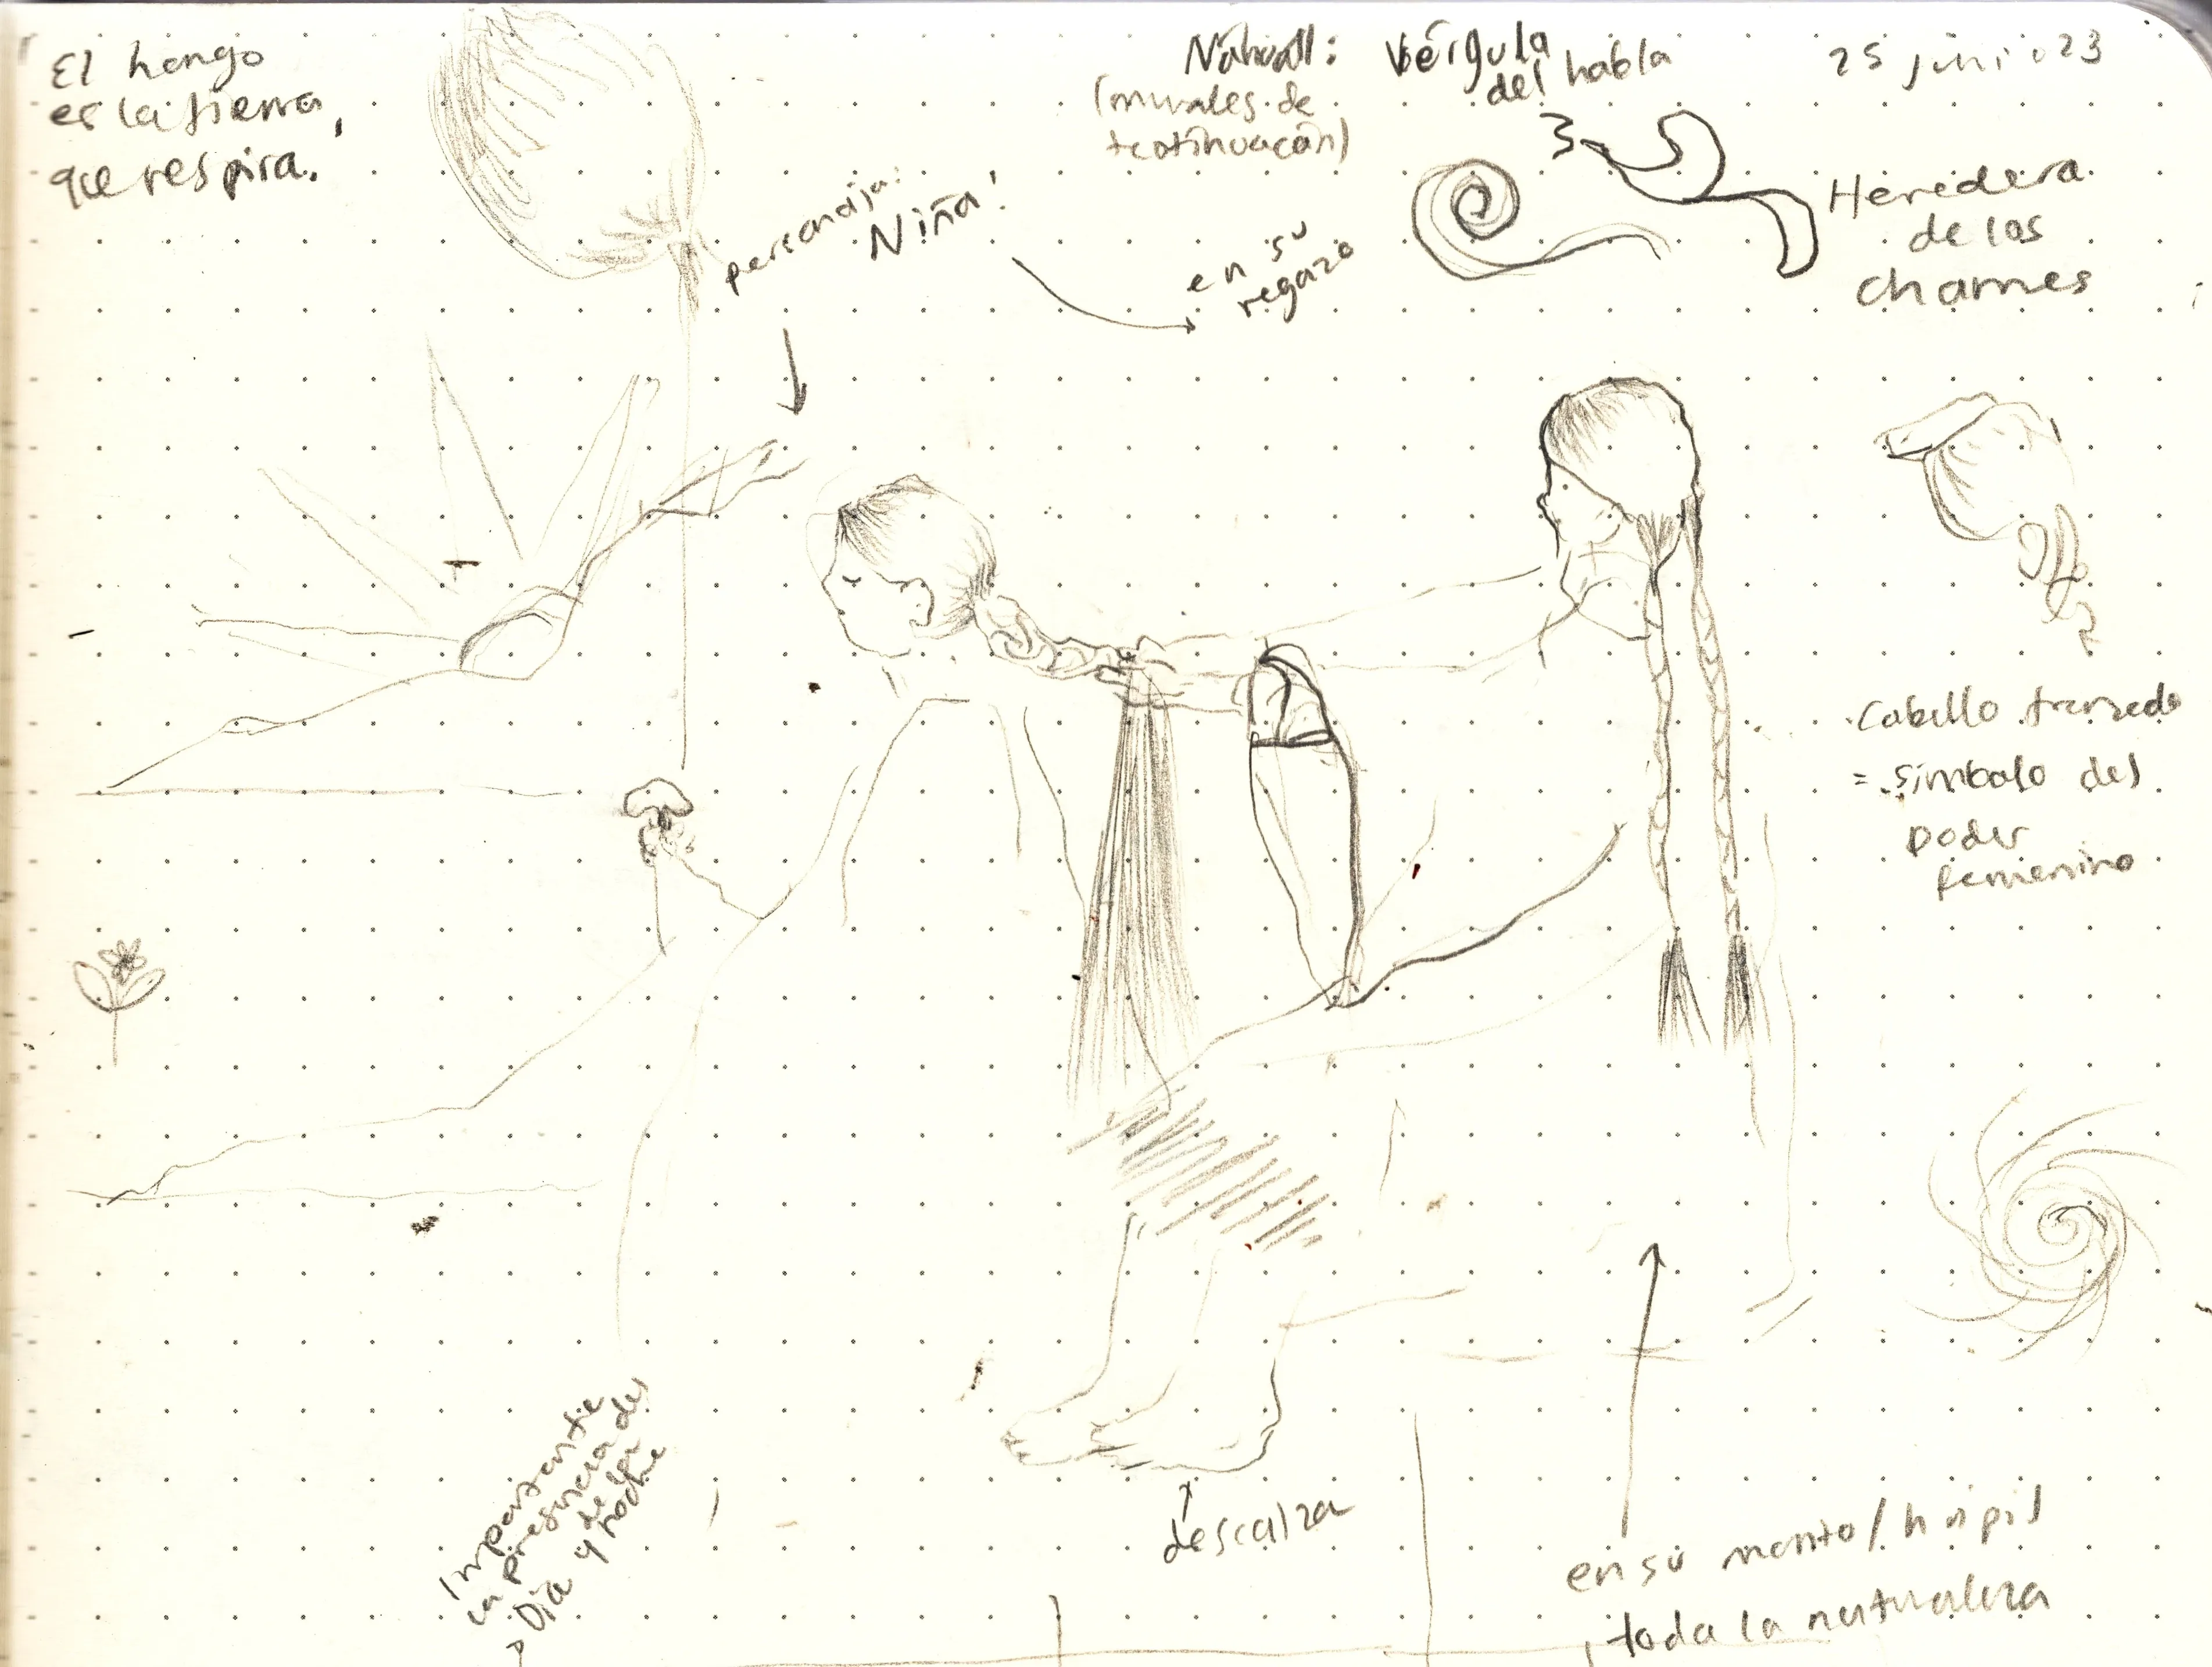 El hongo
es la tierra,
que respira.
Nahuatl:
(murales de
teotihuacán)
Vérgula
del habla
25 junio 23
Heredera
de los
chames
personaja:
Niña!
en su
regazo
Cabello trenzado
= símbolo del
poder
femenino
importante
la presencia del
Día y de la
noche
descalza
en su manto/huipil
toda la naturaleza